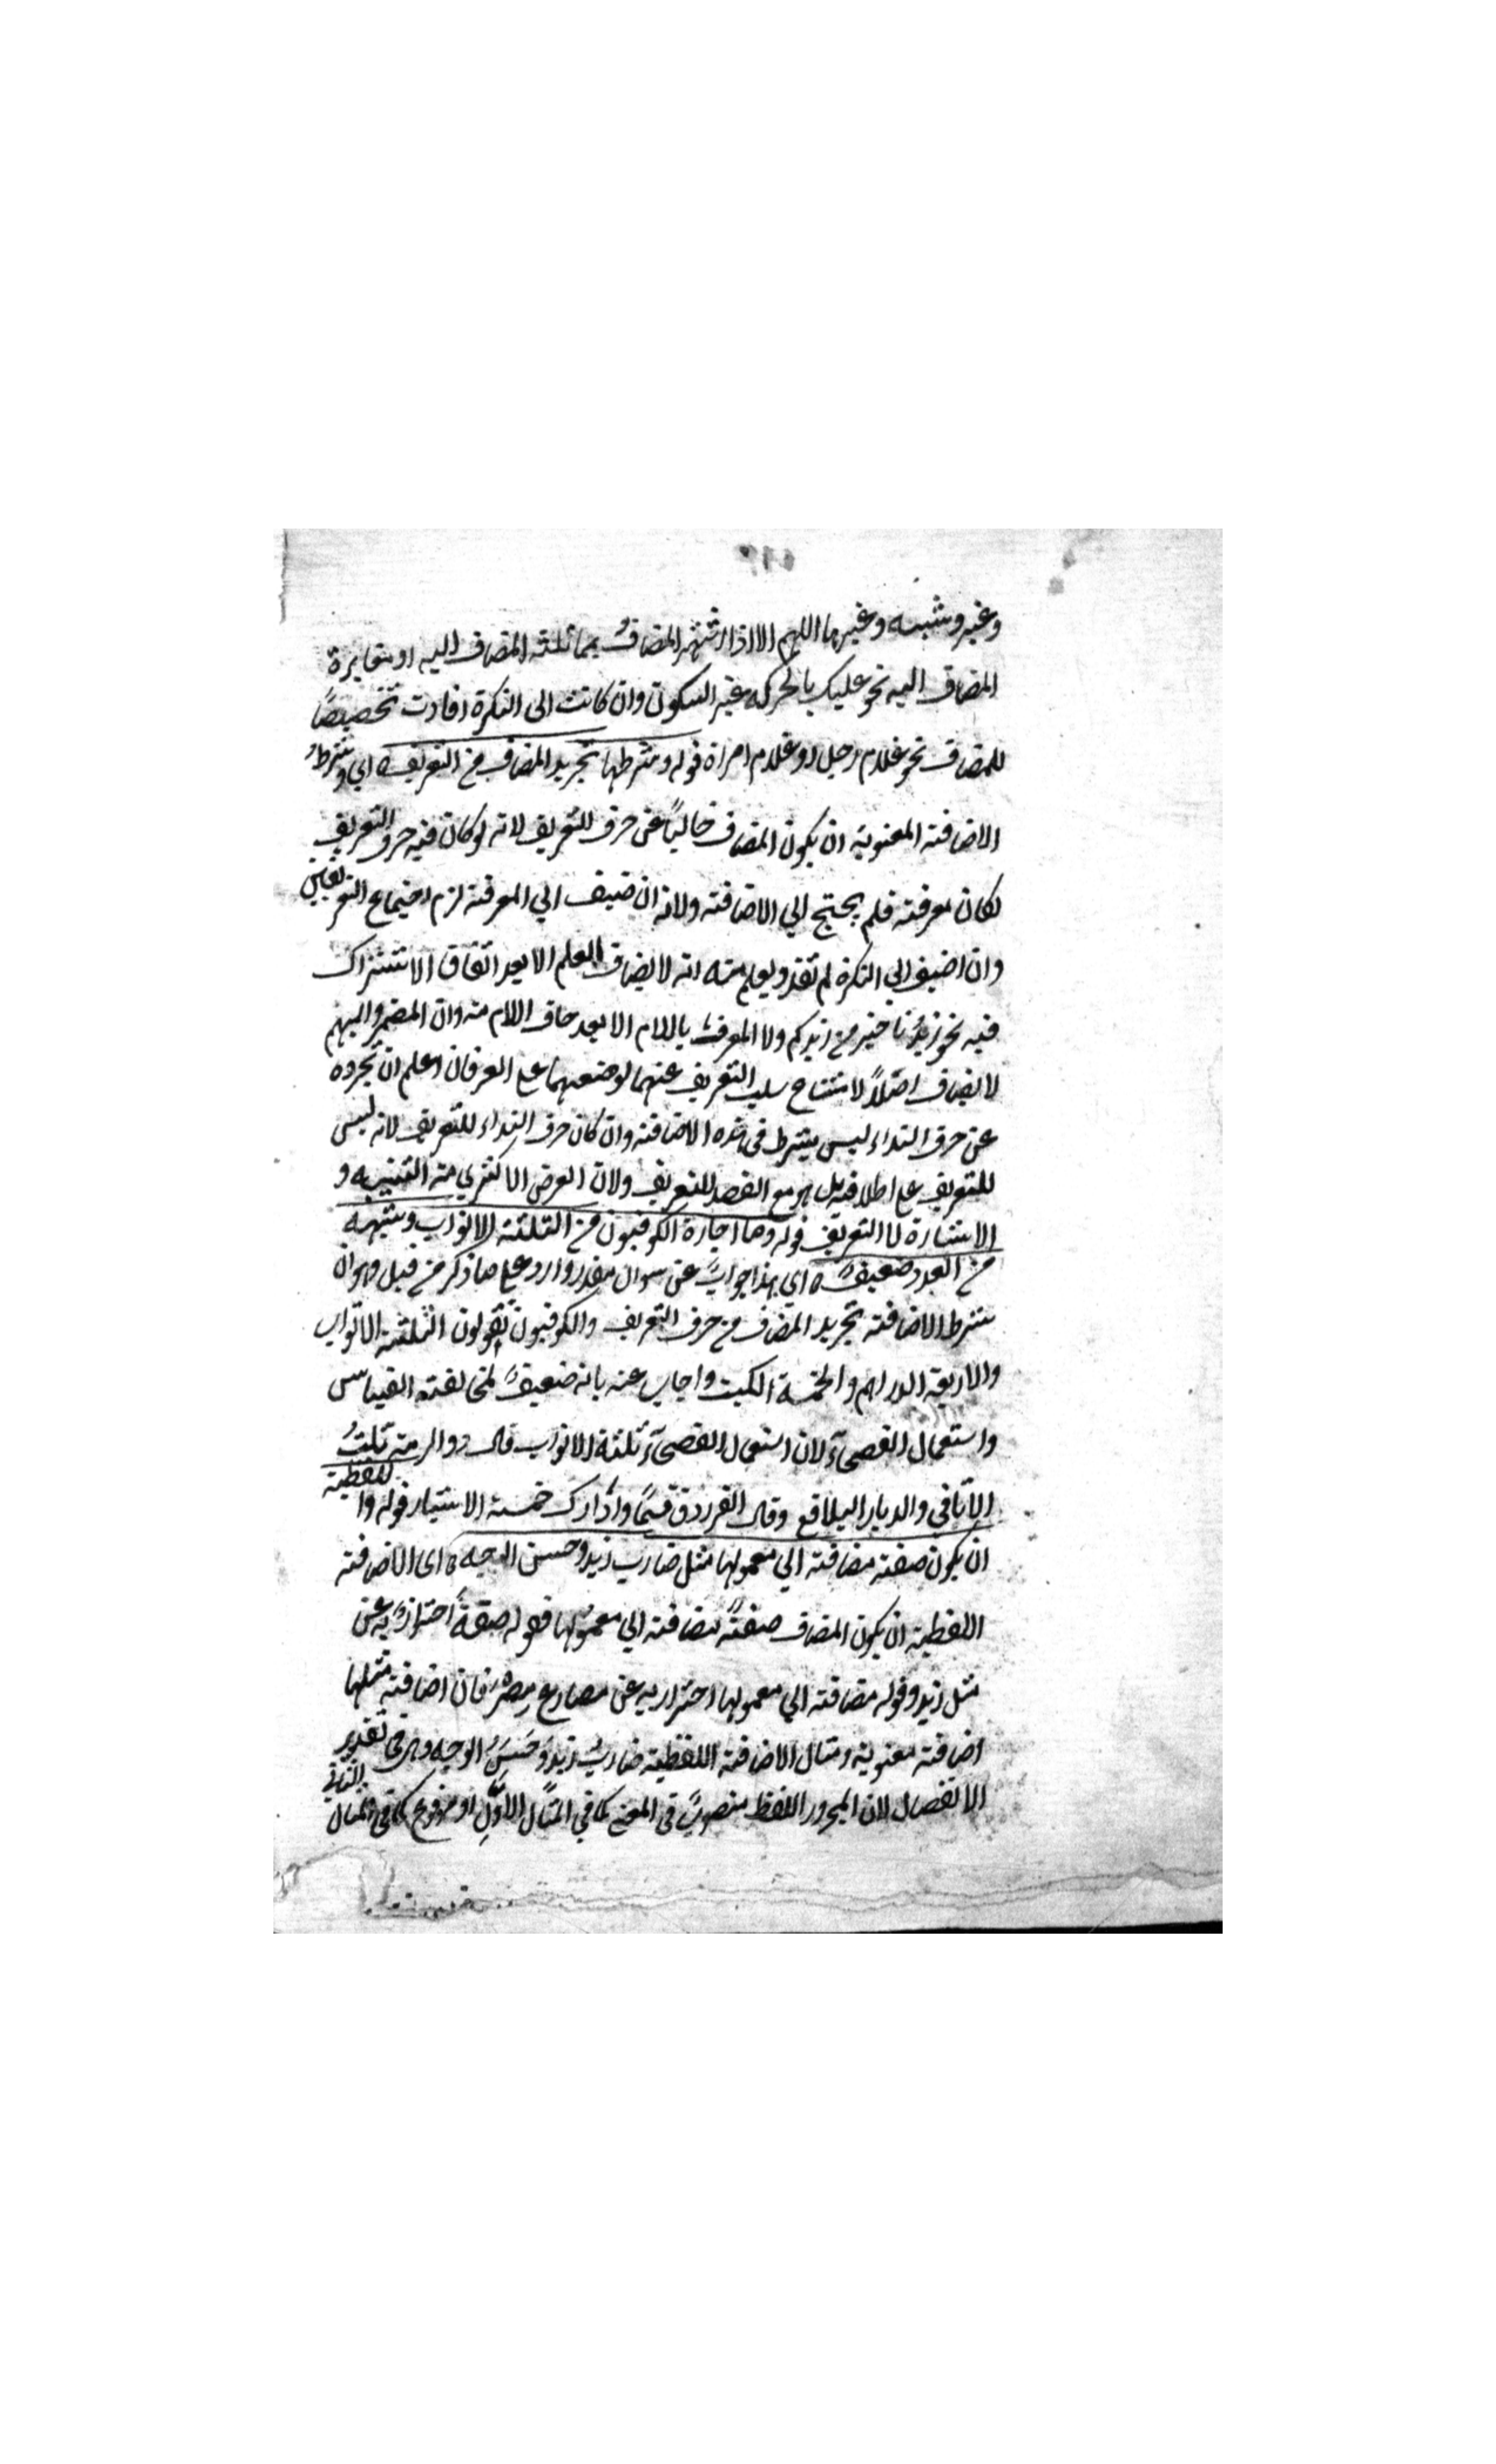 وغير وشبه وغيرها اللهم الا اذا اشتهر المضاف بمماثلة المضاف اليه او مغايرة
المضاف اليه نحو عليك بالحركة غير السكون وان كانت الى النكرة افادت تخصيصًا
للمضاف نحو غلام رجل او غلام امراة قوله وشرطها تجريد المضاف من التعريف اي وشرط
الاضافة المعنوية ان يكون المضاف خاليًا عن حرف التعريف لانه لو كان فيه حرف التعريف
لكان معرفة فلم يحتج الي الاضافة ولانه ان ضيف الي المعرفة لزم اجتماع التعريفين
وان اضيف الي النكرة لم تفد ويعلم منه انه لا يضاف العلم الا بعد اتفاق الاشتراك
فيه نحو زيدُنا خير من زيدكم ولا المعرف باللام الا بعد حذف اللام منه وان المضمر والمبهم
لا يضاف اصلًا لامتناع سلب التعريف عنهما لوضعهما علي العرفان اعلم ان تجرده
عن حرف النداء ليس بشرط في هذه الاضافة وان كان حرف النداء للتعريف لانه ليس
للتعريف علي اطلاقه بل هو مع القصد للتعريف ولان الغرض الاكثري منه التنبيه و
الاشارة لا التعريف قوله وما اجازه الكوفيون من الثلثة الاثواب وشبهه
من العدد ضعيفٌ ه اي هذا جوابٌ عن سوال مقدر وارد علي ما ذكر من قبل وهو ان
شرط الاضافة تجريد المضاف من حرف التعريف والكوفيون يقولون الثلثة الاثواب
والاربعة الدراهم والخمسة الكتب واجاب عنه بانه ضعيفٌ لمخالفته القياس
واستعمال الفصحآء لان استعمال الفصحآء ثلثة الاثواب قال ذو الرمة ثلثُ
الاثافي والديار البلاقع وقال الفرزدق قسمًا وادرك خمسة الاشبار قوله واللفظية
ان يكون صفة مضافة الي معمولها مثل ضارب زيد وحسن الوجه ه اى الاضافة
اللفظية ان يكون المضاف صفةً مضافة الي معمولها فقوله صفةً احترازٌ به عن
مثل زيد وقوله مضافة الي معمولها احتراز به عن مصارع مصر فان اضافة مثلها
اضافة معنوية ومثال الاضافة اللفظية ضاربُ زيد وحسنُ الوجه وهي في تقدير
الانفصال لان المجرور اللفظ منصوبٌ في المعنى كما في المثال الاوّل او مرفوع كما في المثال الثاني